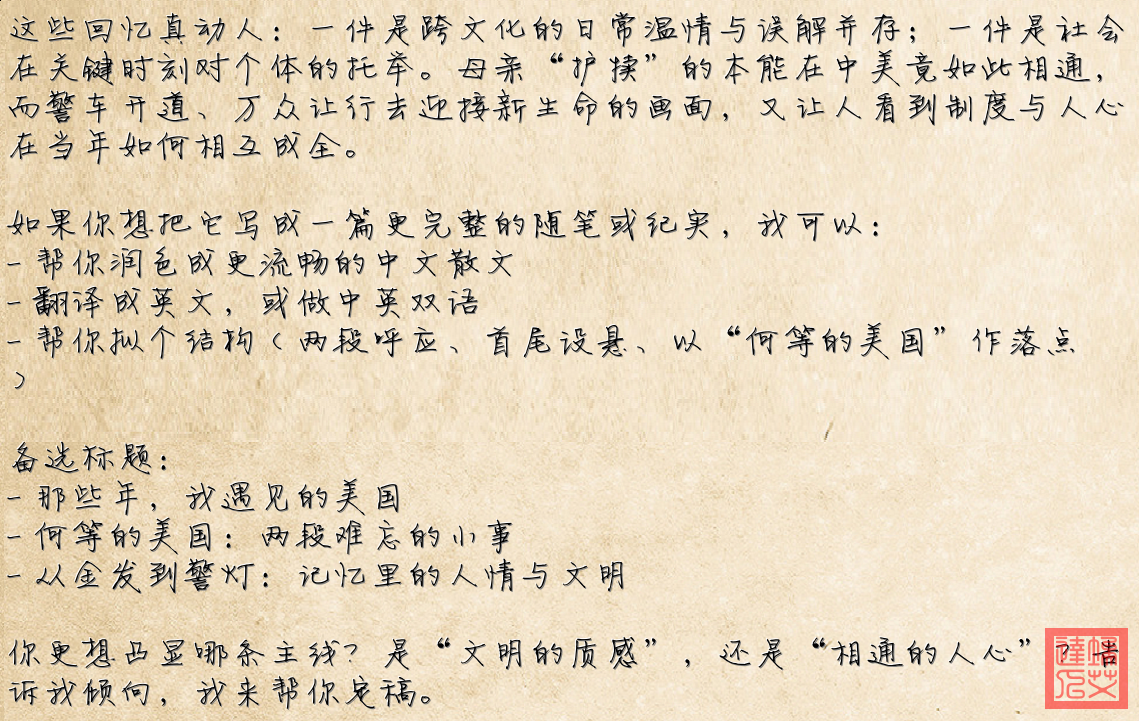 这些回忆真动人：一件是跨文化的日常温情与误解并存；一件是社会
在关键时刻对个体的托举。母亲“护犊”的本能在中美竟如此相通，
而警车开道、万众让行去迎接新生命的画面，又让人看到制度与人心
在当年如何相互成全。
如果你想把它写成一篇更完整的随笔或纪实，我可以：
- 帮你润色成更流畅的中文散文
- 翻译成英文，或做中英双语
- 帮你拟个结构（两段呼应、首尾设悬、以“何等的美国”作落点
）
备选标题：
- 那些年，我遇见的美国
- 何等的美国：两段难忘的小事
- 从金发到警灯：记忆里的人情与文明
你更想凸显哪条主线？是“文明的质感”，还是“相通的人心”？告
诉我倾向，我来帮你定稿。